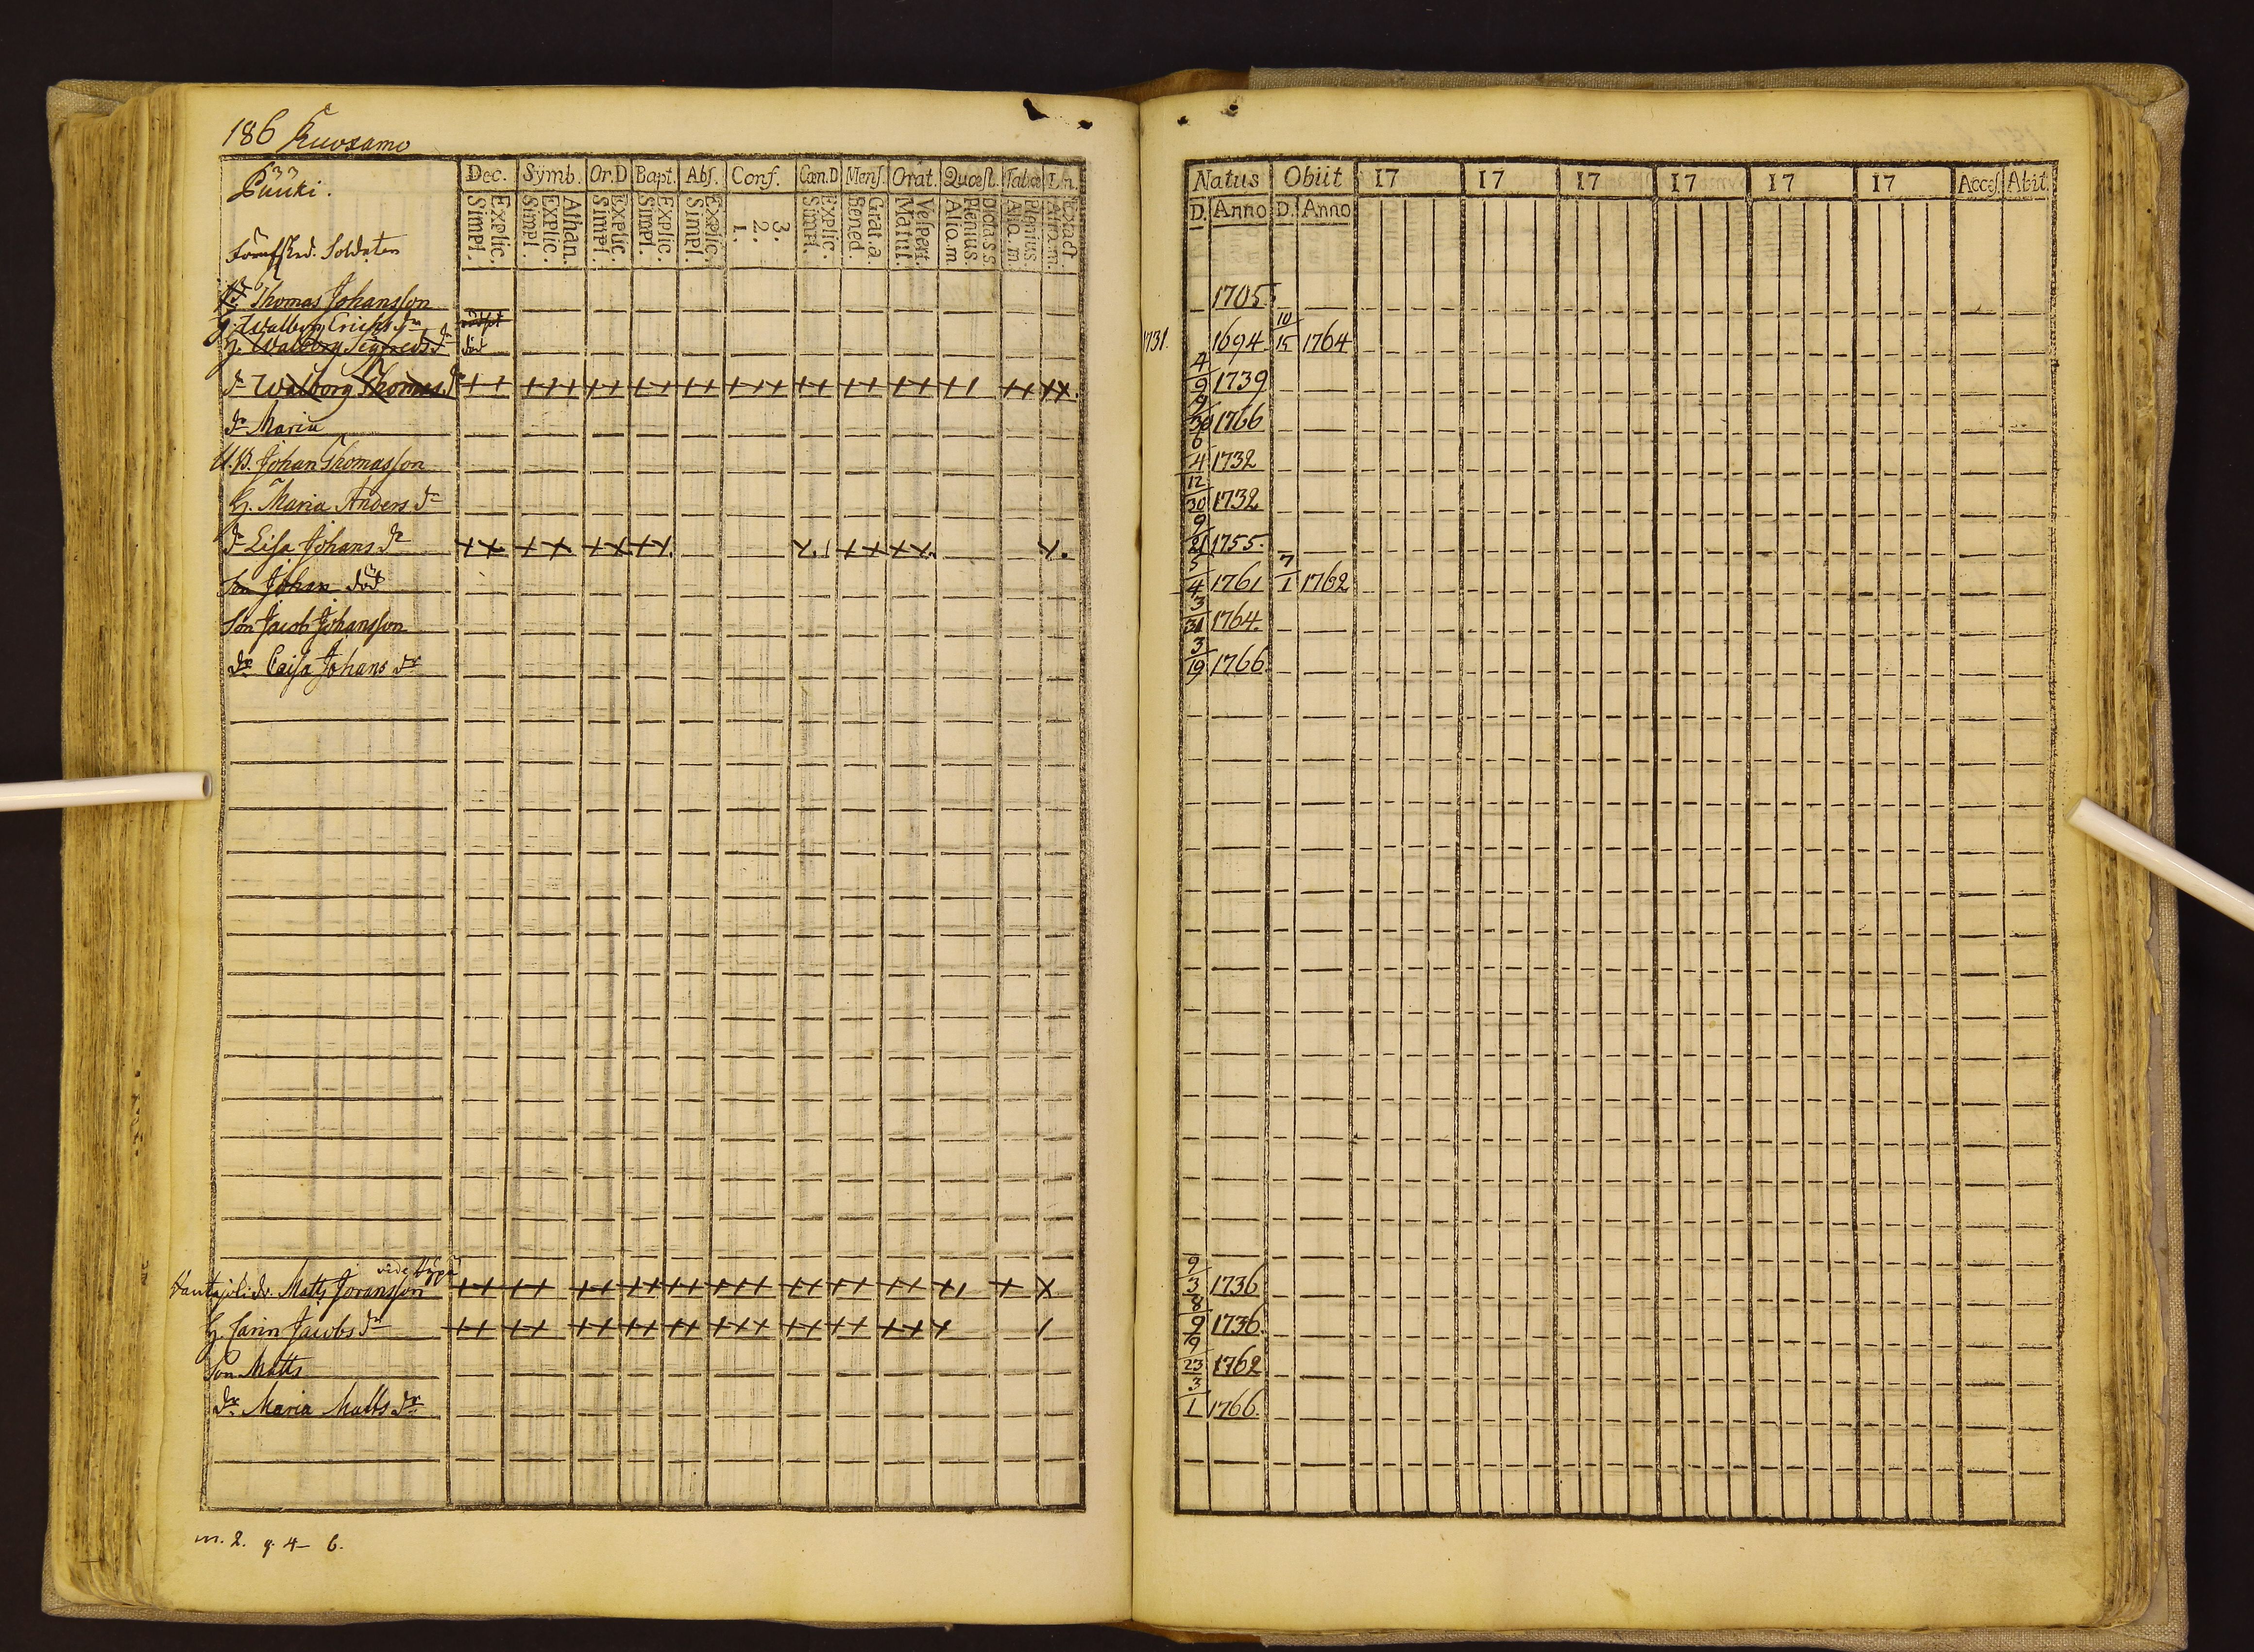 186 Kuusamo
33
Puuki.
Dec. Symb. Or.D Bapt. Abs. Conf. Cœn.D Mens. Orat. Quæst. Tabœ
Explic. Simpl. Athan. Explic. Simpl. Explic. Simpl. Explic. Simpl. Explic. Simpl. 3. 2. 1. Explic. Simpl. Grat.a. Bened. Vespert. Matut. Dicta s.s. Plenius. Alio.m. Plenius. Alio.m.
Soldaten
Thomas Johansson
Walborg Erichs dr
H. Walborg Sigfreds dr död
dr Walborg Thomas dr
dr Maria
U.B. Johan Thomasson
H. Maria Anders dr
dr Lisa Johans dr
Son Johan död
Son Jacob Johansson
dr Caisa Johans dr
vide
Matts Joransson
H. Carin Jacobs dr
Son Matts
dr Maria Matts dr
m. 2. q. 4 - 6.
Natus Obiit 17 17 17 17 17 17 Acces. Abit.
D. Anno D. Anno
1705
1731. 1694 10/15 1764
4/9 1739
9/30 1766
6/4 1732
12/30 1732
9/21 1755.
5/4 1761 7/1 1762
3/31 1764.
3/19 1766
9/3 1736
8/9 1736.
9/23 1762
3/1 1766.